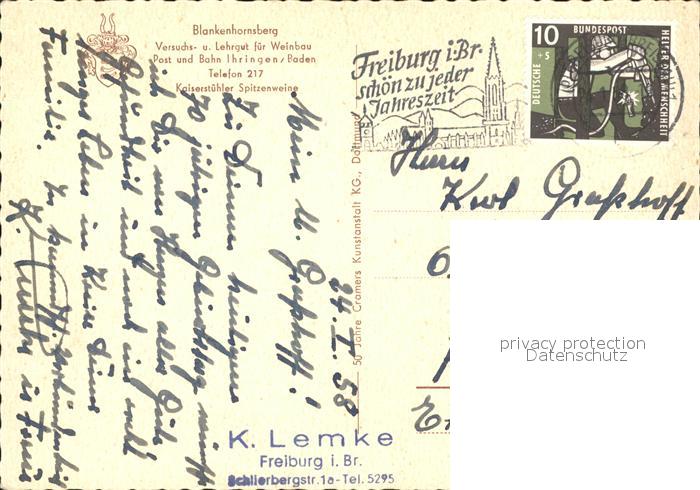 Blankenhornsberg
Versuchs- u. Lehrgut für Weinbau
Post und Bahn Ihringen/Baden
Telefon 217
Kaiserstühler Spitzenweine
Freiburg i. Br.
schön zu jeder
Jahreszeit
10
+5
DEUTSCHE
BUNDESPOST
HELFER DER MENSCHHEIT
50 Jahre Cramers Kunstanstalt KG., Dortmund
Herrn
Karl Graßhoff
24. I. 58
Mein lb. Graßhoff!
Zu Deinem heutigen
70 jährigen Geburtstag wünsche
ich Dir von Herzen alles Gute
Gesundheit und noch ein recht
langes Leben im Kreise Deiner
Familie. In
K. Lemke
K. Lemke
Freiburg i. Br.
Schlierbergstr. 1a - Tel. 5295
privacy protection
Datenschutz